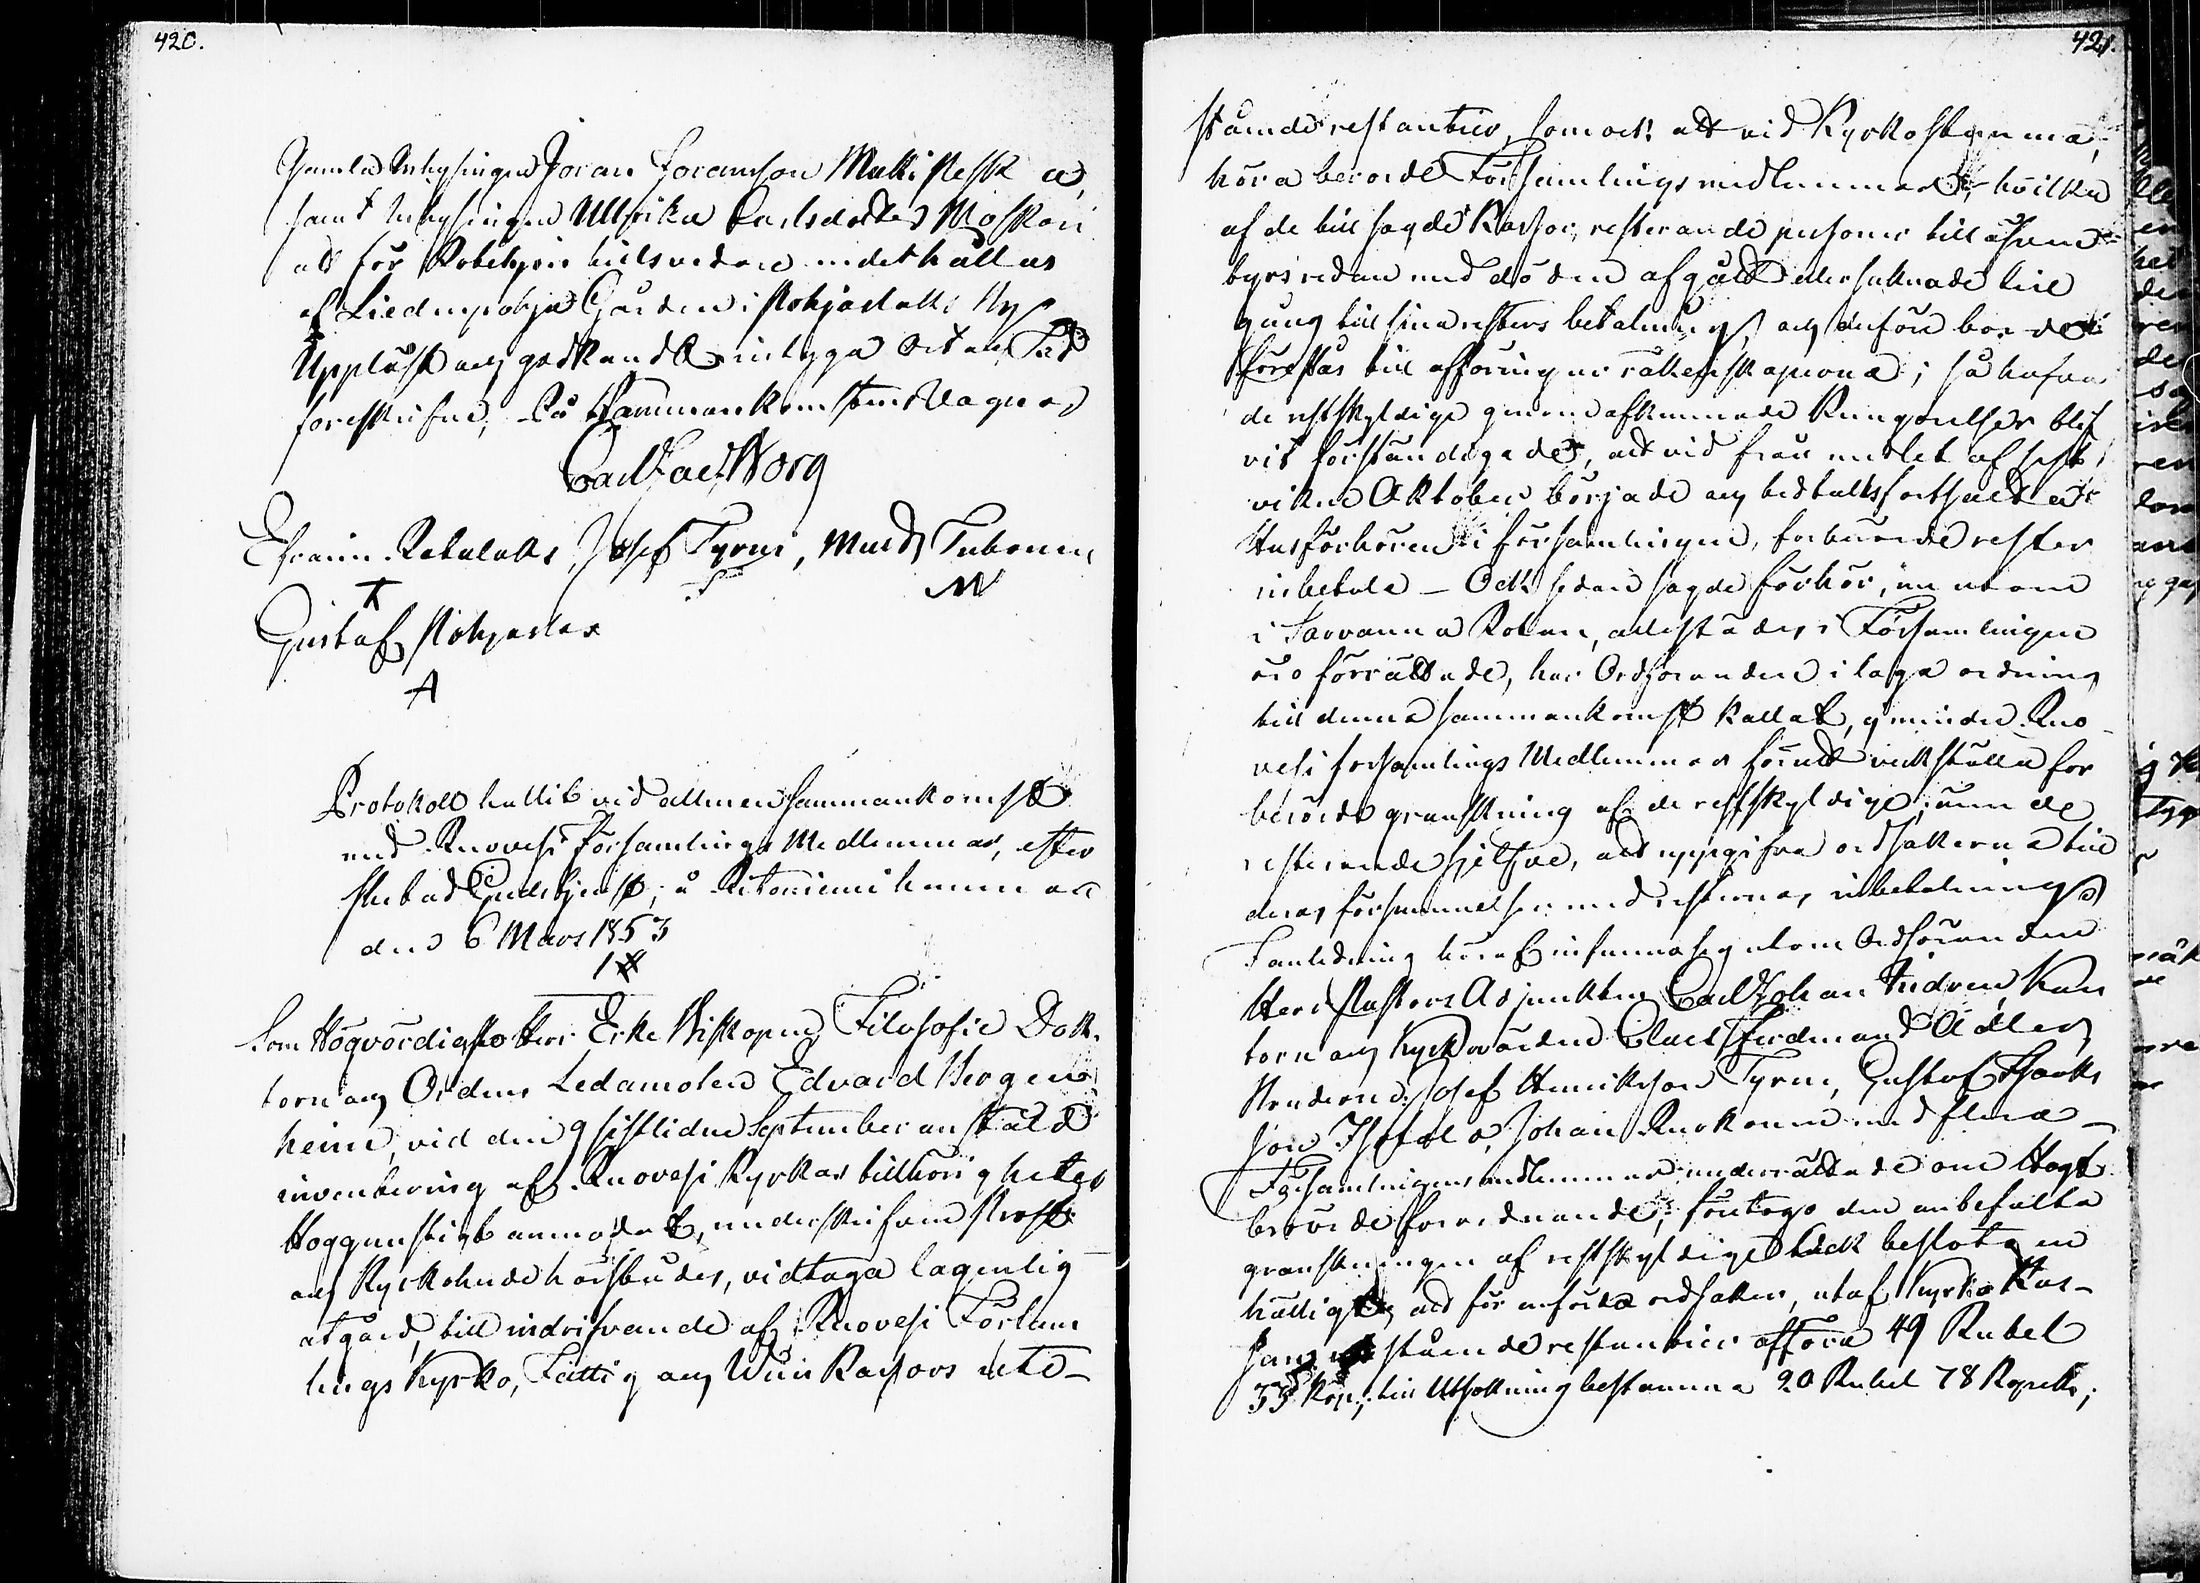 420.
Gamla Inhysingen Joran Joranson Mattipessa a,
samt Inhysingen Ulrika Carlsdotter Moskari
att för Rotehjon tillsvidare underhållas
af Liedenpohja Gården i Pohjaslaks By
Uppläst och godkändt intyga Ort och Tid
föreskrifne, På Sammankomstens vagnar
Carl Jac Borg
Efraim Ratalaks, Josef Tyrni, Matts Tuhonen
Gustaf Pohjaslax
Protokoll hållit vid allmen sammankomst
med Ruovesi Församlings Medlemmar, efter
slutad Gudstjenst, å Ritoniemi hemman
den 6 Mars 1853
1 §
Som Högvördigste Herr Erke Biskopen, Filosofie Dok-
torn och Ordens Ledamoten Edvard Bergen-
heim, vid den 9 sistlidne September anstäld
inventering af Ruovesi Kyrkas tillhörigheter
Höggunstigt anmodat, underskrifven Prost
och Kyrkoherde härstädes, vidtaga lagenlig
åtgärd, till indrifvande af Ruovesi Försam-
lings Kyrko, Fattig och Win Kassors ute-
421.
stående restantier, som ock att vid Kyrkostämma,
höra berörde Församlings medlemmar, hvilka
af de till sagde Kassor, resterande personer till äfven-
tyrs redan med döden afgått eller saknade till
gång till sina resters betalning, och derföre bör de
föreslås till afföring ur räkenskaperna; så hafva
de restskyldige genom afkunnade Kungörelser blif-
vit förständigade, att vid från medlet af sist-
vikne Oktober började och tidtals fortsatta
Husförhören i församlingen, förberörde rester
inbetala – Och sedan sagde förhör, en utom
i Sarvanna Rotan, allestädes i Församlingen
äro förrättade, har Ordföranden i laga ordning
till denna sammankomst kallat, gemenden Ruo-
vesi församlings Medlemmar förutt verkställa för
berörde granskning af de restskyldige, äum de
resterande sjelfve, att uppgifva ordsakerna till
deras försummelser med resternas inbetalning.
I anledning häraf infunno sig utom Ordföranden
Herr Pastors Adjunkten Carl Johan Hidren, Kan-
torn och Kyrkovärden Carl Ferdinand Adler,
Bönderne Josef Henriksson Tyrni, Gustaf Isaks-
son Ihotal a, Johan Ruokonen med flera
Församlingens medlemmar underrättade om Högt-
berörde förordnande; företogs den anbefalta
granskningen af restskyldige och beslöts en
hälligt, att för anförde ordsaker, utaf Kyrko Kas-
sans utestående restantier afföra 49 Rubel
33 Kop; till Utsökning bestämma 20 Rubel 78 Kopek;